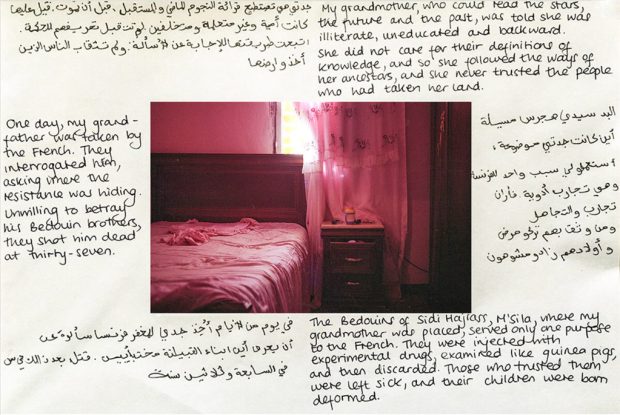 جدتي هي تستطيع قراءة النجوم الماضي والمستقبل. قبل أن تموت. قيل عليها
كانت أمية وغير متعلمة ومتخلفين لم تقبل تعريفهم للحكمة.
اتبعت طريقتها الإجابة عن الأسألة. ولم الناس الذين
أخذوا ارضها
My grandmother, who could read the stars,
the future and the past, was told she was
illiterate, uneducated and backward.
She did not care for their definitions of
knowledge, and so she followed the ways of
her ancestors, and she never trusted the people
who had taken her land.
One day, my grand-
father was taken by
the French. They
interrogated him,
asking where the
resistance was hiding.
Unwilling to betray
his Bedouin brothers,
they shot him dead
at thirty-seven.
البد سيدي هجرس مسيلة
أين كانت جدتي موضوعة،
سبب واحد لفرنسا
وهي تجارب أدوية. فأران
تجارب والتجاهل
ومن بهم تركو مرضى
و أولادهم زادو مشوهون
في يوم من الأيام أخذ جدي فرنسا سألوه عن
أن يعرف أين ابناء القبيلة مختبأيين. قتل بعد
في السابعة وثلاثين سنة
The Bedouins of Sidi Hajrass, M'Sila, where my
grandmother was placed, served only one purpose
to the French. They were injected with
experimental drugs, examined like guinea pigs,
and then discarded. Those who trusted them
were left sick, and their children were born
deformed.